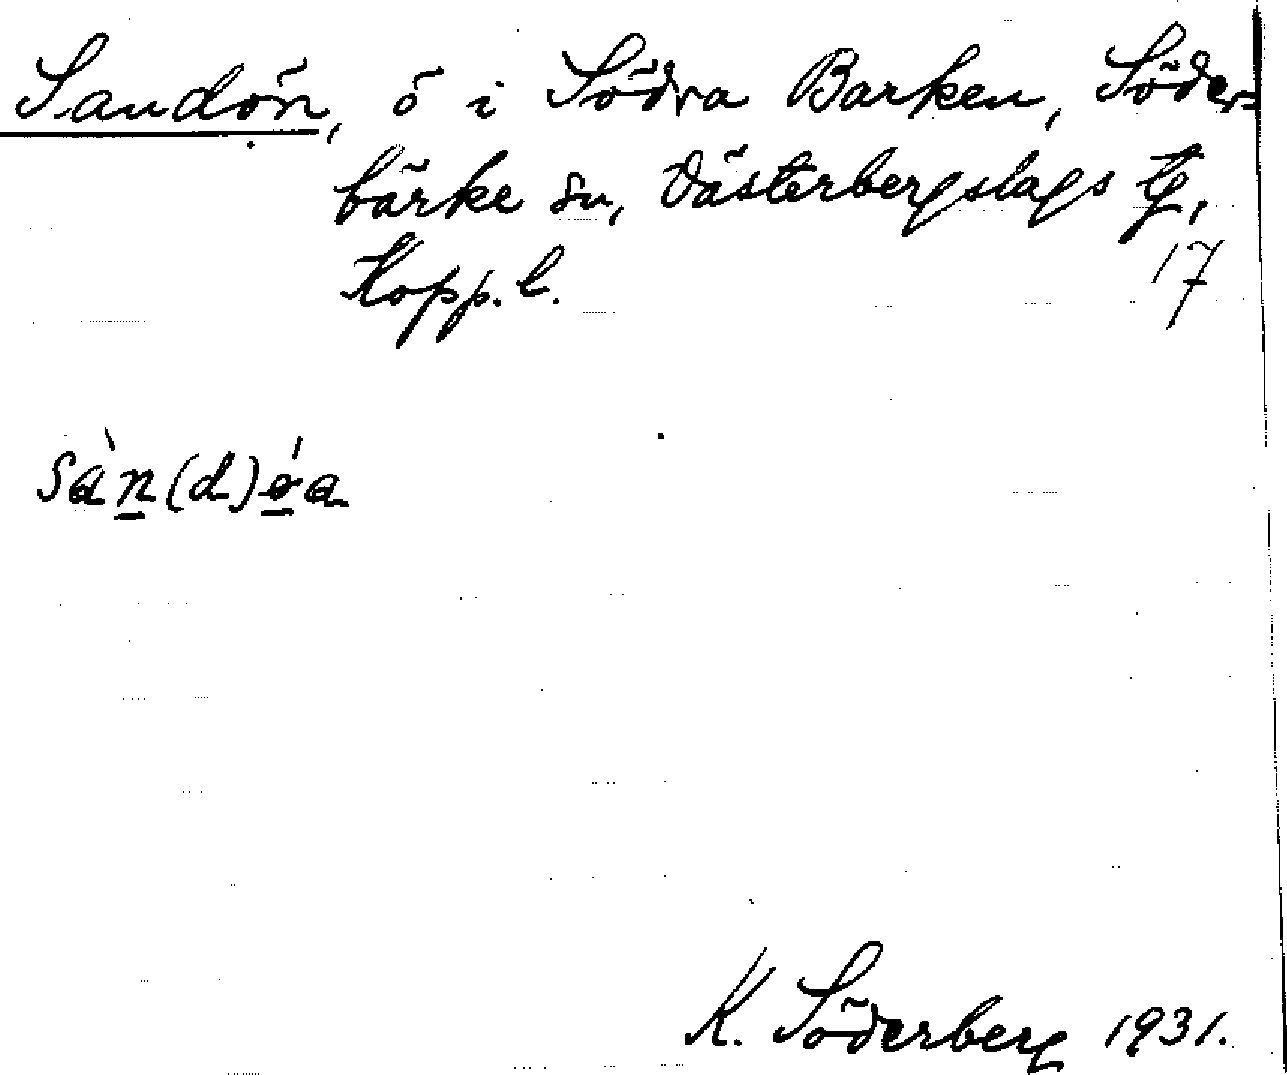 Sandön, ö i Södra Barken, Söder-
bärke sn, Västerbergslags tg,
Kopp. l.
17
sàn(d)ǿa
K. Söderberg 1931.